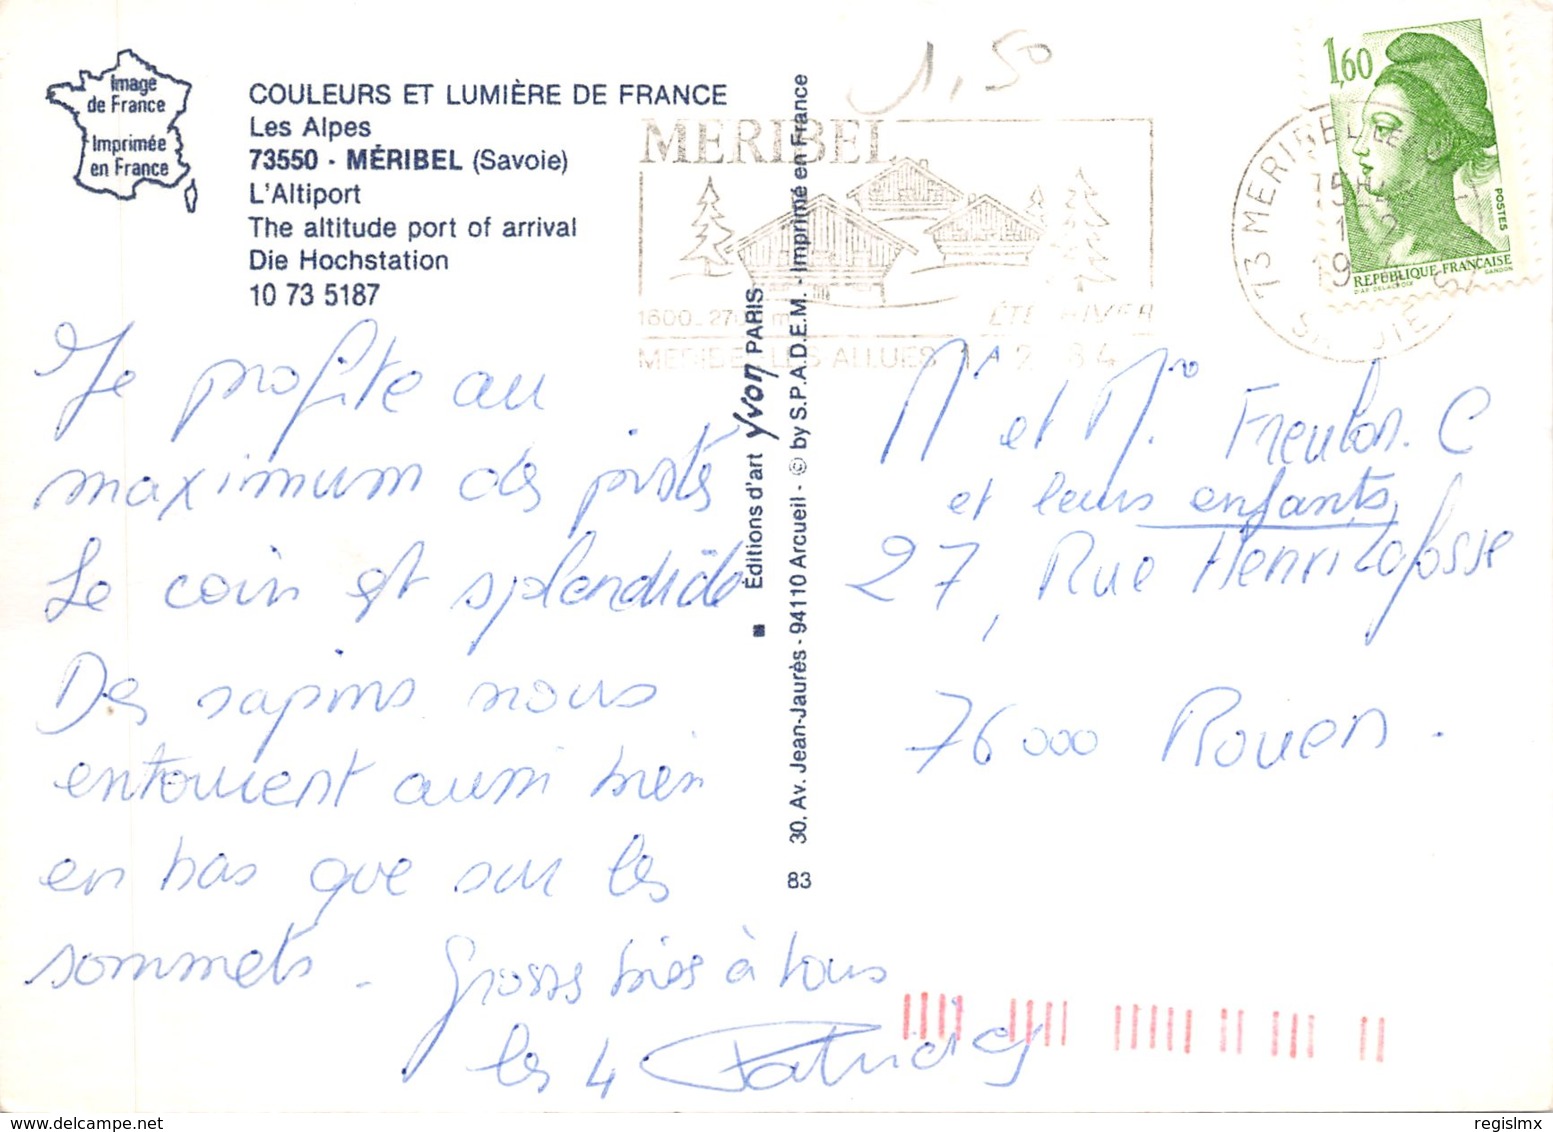 Image
de France
Imprimée
en France
COULEURS ET LUMIÈRE DE FRANCE
Les Alpes
73550 - MÉRIBEL (Savoie)
L'Altiport
The altitude port of arrival
Die Hochstation
10 73 5187
1,50
MERIBEL
ÉTÉ HIVER
LES ALLUES 1 2 84
73 MERIBEL LES
SAVOIE
1,60
POSTES
REPUBLIQUE FRANÇAISE
D'AP. DELACROIX
GANDON
Je profite au
maximum des pistes
Le coin est splendide
Des sapins nous
entourent aussi bien
en bas que sur les
sommets. Grosses bises à tous
les 4 Patricia
Éditions d'art Yvon PARIS
30. Av. Jean-Jaurès - 94110 Arcueil - © by S.P.A.D.E.M. - Imprimé en France
83
Mr et Me C
et leurs enfants
27, Rue Henri Lafosse
76000 Rouen.
delcampe.net
regislmx